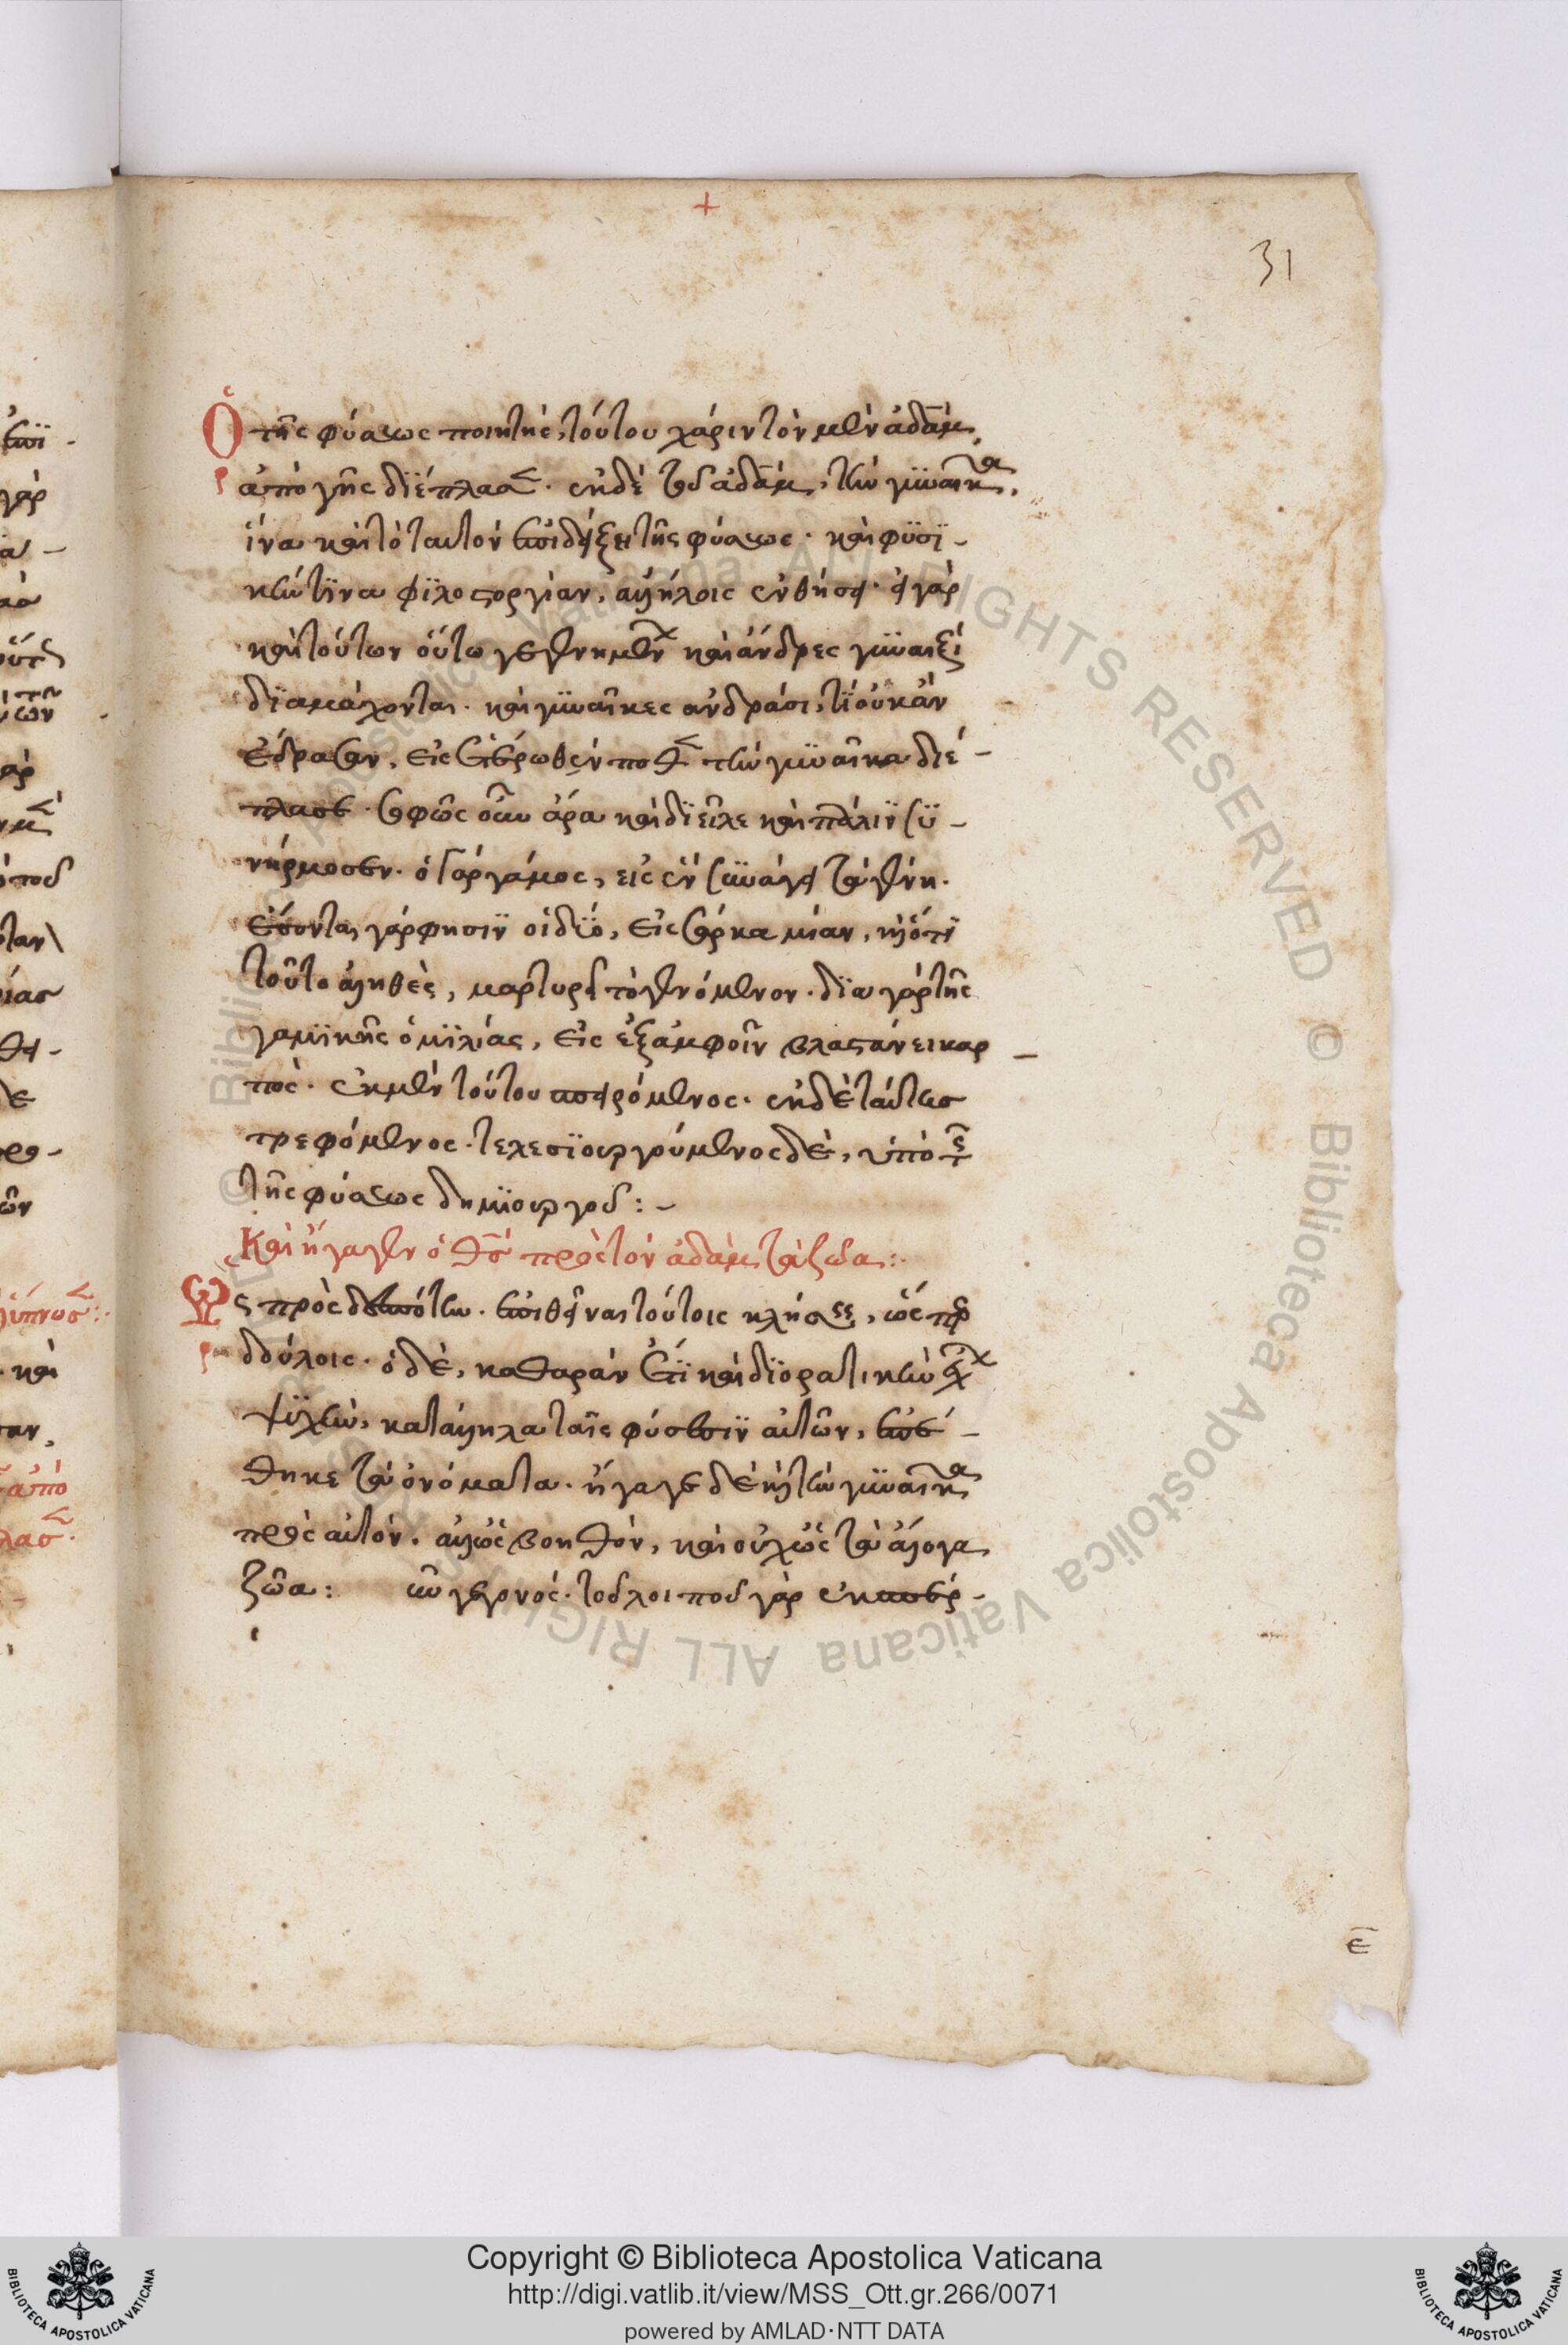 +
31
Ὁ τῆς φύσεως ποιητής, τούτου χάριν τὸν μὲν ἀδὰμ,
ἀπὸ γῆς διέπλασε. ἐκ δὲ τοῦ ἀδὰμ, τὴν γυναῖκα,
ἵνα καὶ τὸ ταυτὸν ἐπιδείξῃ τῆς φύσεως. καὶ φυσι-
κήν τινα φιλοστοργίαν, ἀλλήλοις ἐνθήσει. εἰ γὰρ
καὶ τούτων οὕτω γεγενημένων καὶ ἄνδρες γυναιξὶ
διαμάχονται. καὶ γυναῖκες ἀνδράσι, τί οὐκ ἂν
ἔδρασαν, εἰς ἑτέρωθέν ποθεν τὴν γυναῖκα διέ-
πλασε. σοφῶς οὖν ἄρα καὶ διεῖλε καὶ πάλιν συ-
νήρμοσεν. ὁ γὰρ γάμος, εἰς ἓν συνάγει τὰ γένη.
ἔσονται γάρ φησιν οἱ δύο, εἰς σάρκα μίαν, καὶ ὅτι
τοῦτο ἀληθὲς, μαρτυρεῖ τὸ γενόμενον. διὰ γὰρ τῆς
γαμικῆς ὁμιλίας, εἷς ἐξ ἀμφοῖν βλαστάνει καρ-
πὸς. ἐκ μὲν τούτου σπειρόμενος. ἐκ δὲ ταύτης
τρεφόμενος. τελεσιουργούμενος δὲ, ὑπὸ τοῦ
τῆς φύσεως δημιουργοῦ:-
Καὶ ἤγαγεν ὁ θσ πρὸς τὸν ἀδὰμ τὰ ζῶα:.
Ὡς πρὸς δεσπότην. ἐπιθεῖναι τούτοις κλήσεις, ὡς πρὸς
δούλοις. ὁ δὲ, καθαρὰν ἔτι καὶ διορατικὴν ἔχων
ψυχὴν, κατάλληλα ταῖς φύσεσιν αὐτῶν, ἐπέ-
θηκε τὰ ὀνόματα. ἤγαγε δὲ καὶ τὴν γυναῖκα
πρὸς αὐτὸν. ἀλλ' ὡς βοηθὸν, καὶ οὐχ ὡς τὰ ἄλογα
ζῶα:
ε
Copyright © Biblioteca Apostolica Vaticana
http://digi.vatlib.it/view/MSS_Ott.gr.266/0071
powered by AMLAD·NTT DATA